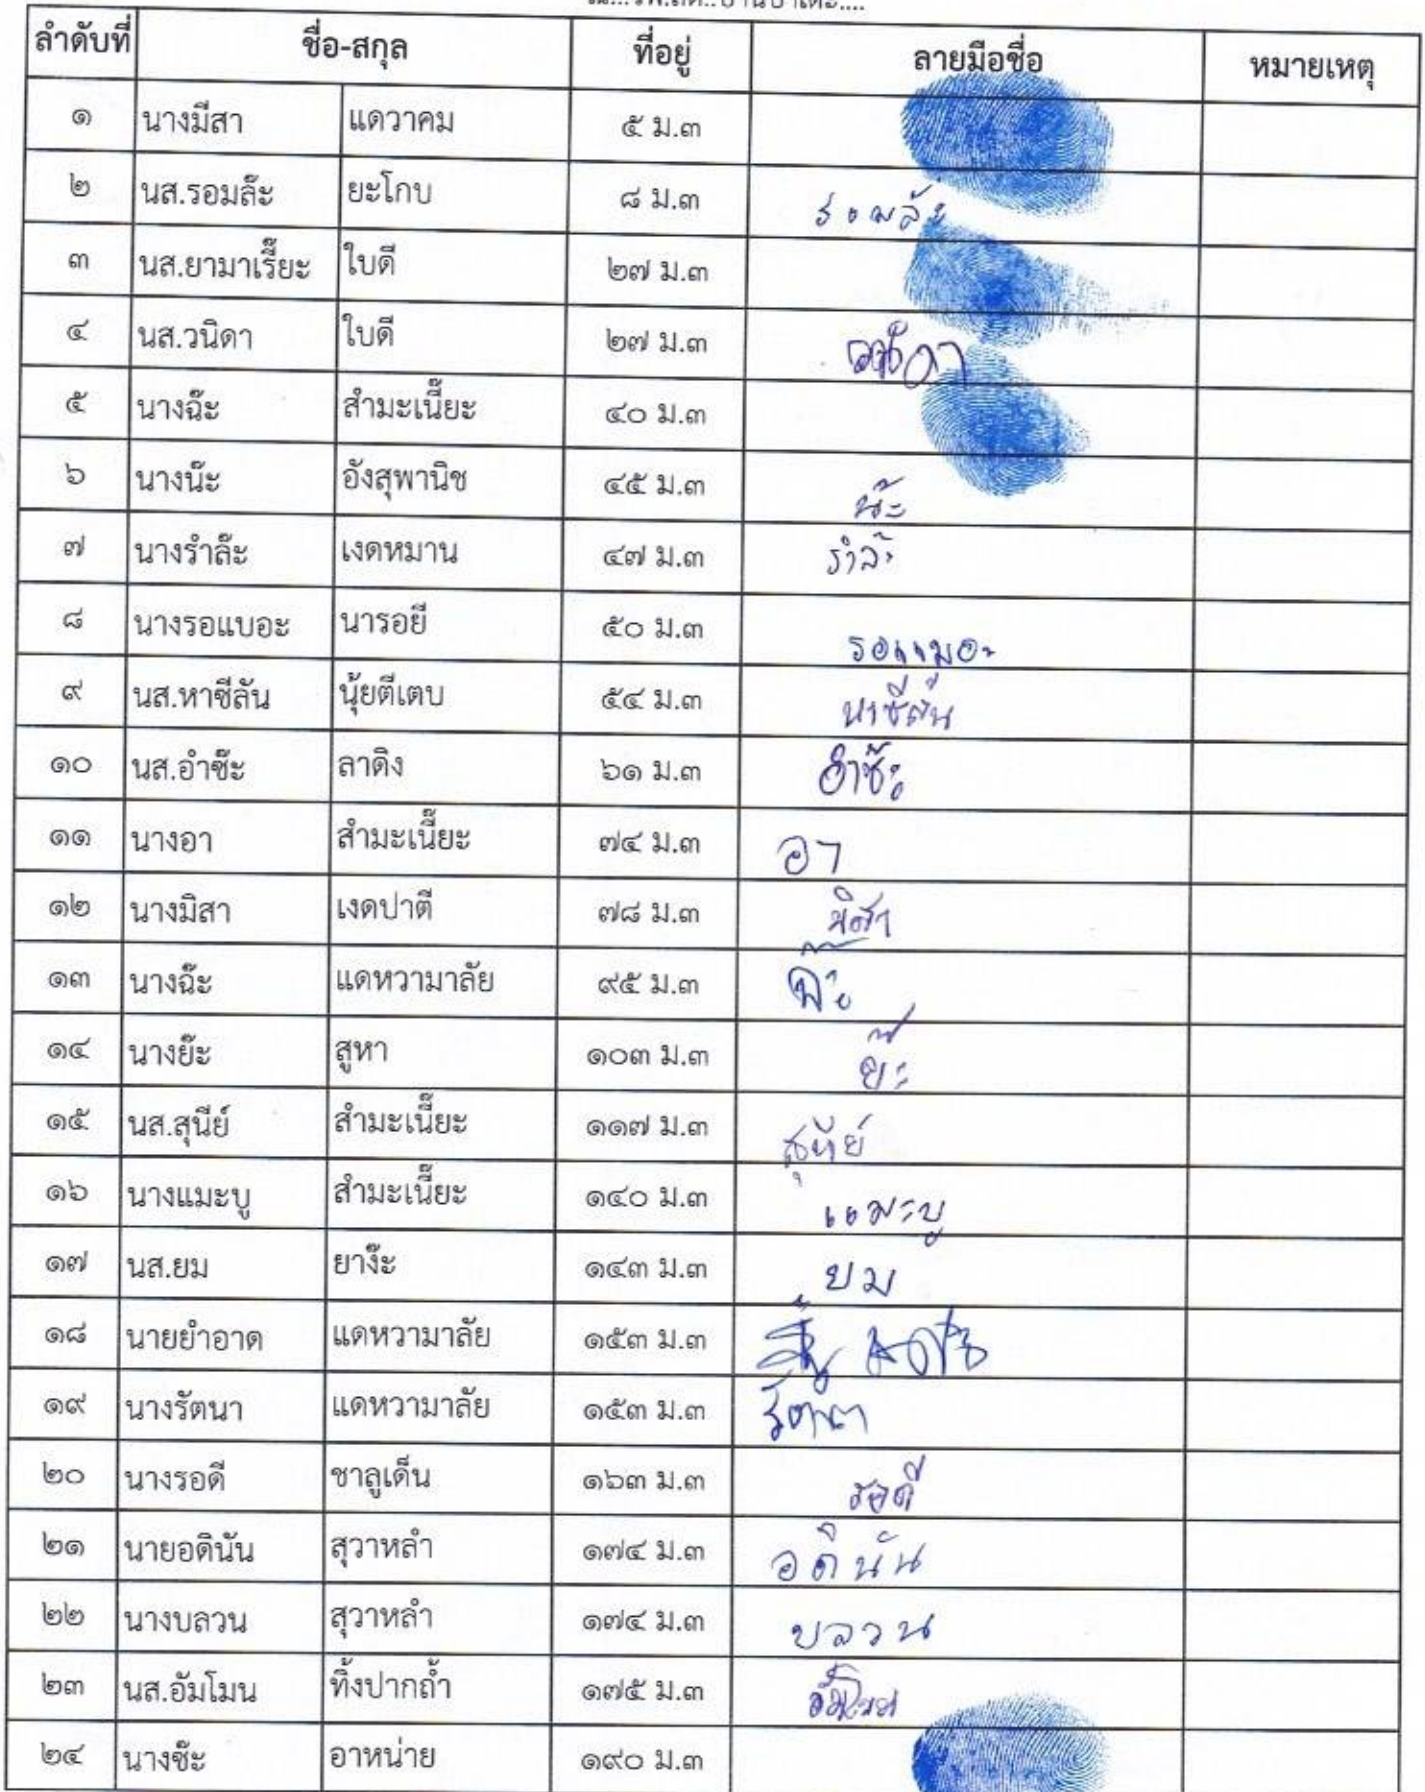 ลำดับที่ ชื่อ-สกุล ที่อยู่ ลายมือชื่อ หมายเหตุ
๑ นางมีสา แดวาคม ๕ ม.๓
๒ นส.รอมล๊ะ ยะโกบ ๘ ม.๓ รอมล๊ะ
๓ นส.ยามาเรี๊ยะ ใบดี ๒๗ ม.๓
๔ นส.วนิดา ใบดี ๒๗ ม.๓ วนิดา
๕ นางฉ๊ะ สำมะเนี๊ยะ ๔๐ ม.๓
๖ นางน๊ะ อังสุพานิช ๔๕ ม.๓ น๊ะ
๗ นางรำล๊ะ เงดหมาน ๔๗ ม.๓ รำล๊ะ
๘ นางรอแบอะ นารอยี ๕๐ ม.๓ รอแมอะ
๙ นส.หาซีลัน นุ้ยตีเตบ ๕๔ ม.๓ หาซีลัน
๑๐ นส.อำซ๊ะ ลาดิง ๖๑ ม.๓ อำซ๊ะ
๑๑ นางอา สำมะเนี๊ยะ ๗๔ ม.๓ อา
๑๒ นางมิสา เงดปาตี ๗๘ ม.๓ มิสา
๑๓ นางฉ๊ะ แดหวามาลัย ๙๕ ม.๓ ฉ๊ะ
๑๔ นางย๊ะ สูหา ๑๐๓ ม.๓ ย๊ะ
๑๕ นส.สุนีย์ สำมะเนี๊ยะ ๑๑๗ ม.๓ สุนีย์
๑๖ นางแมะบู สำมะเนี๊ยะ ๑๔๐ ม.๓ แมะบู
๑๗ นส.ยม ยาง๊ะ ๑๔๓ ม.๓ ยม
๑๘ นายยำอาด แดหวามาลัย ๑๕๓ ม.๓
๑๙ นางรัตนา แดหวามาลัย ๑๕๓ ม.๓ รัตนา
๒๐ นางรอดี ชาลูเด็น ๑๖๓ ม.๓ รอดี
๒๑ นายอดินัน สุวาหลำ ๑๗๔ ม.๓ อดินัน
๒๒ นางบลวน สุวาหลำ ๑๗๔ ม.๓ บลวน
๒๓ นส.อัมโมน ทิ้งปากถ้ำ ๑๗๕ ม.๓
๒๔ นางซ๊ะ อาหน่าย ๑๙๐ ม.๓